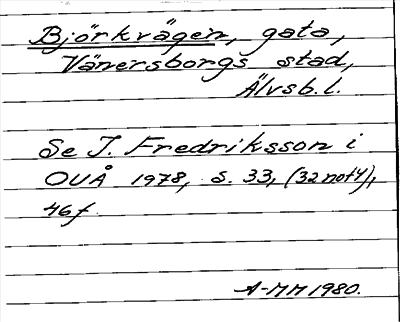 Björkvägen, gata,
Vänersborgs stad,
Älvsb. l.
Se I. Fredriksson i
OUÅ 1978, s. 33, (32 not 4),
46f.
A-MM 1980.